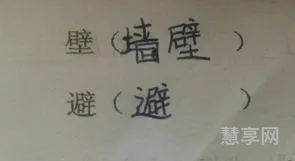 壁（墙壁）
避（避）
慧享网